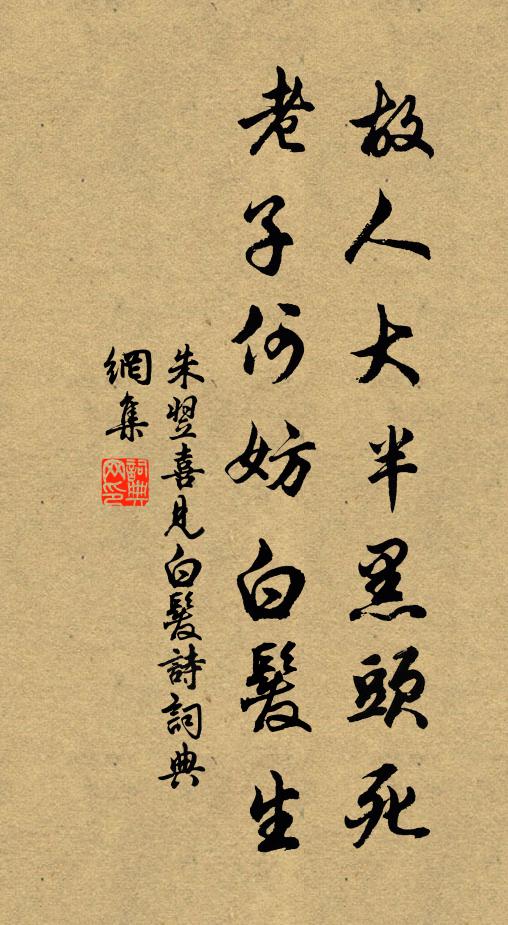 故人大半黑頭死
老子何妨白髮生
朱翌喜見白髮詩詞典
網集
詞典
网印